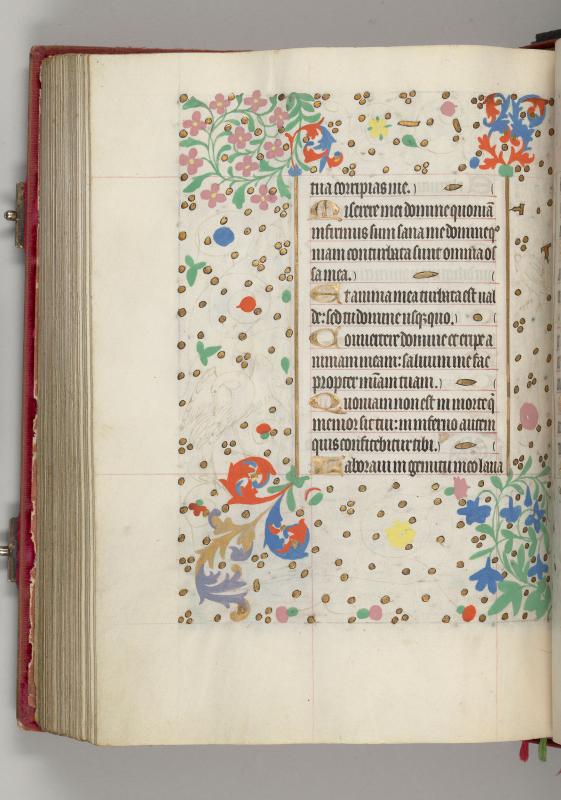 tua corripias me.
Miserere mei domine quoniā
infirmus sum sana me domine qō
niam conturbata sunt omnia os
sa mea.
Et anima mea turbata est ual
de: sed tu domine usqꝫ quo.
Conuertere domine et eripe a
nimam meam: saluum me fac
propter mīam tuam.
Quoniam non est in morte q̄
memor sit tui: in inferno autem
quis confitebitur tibi.
Laboraui in gemitu meo laua